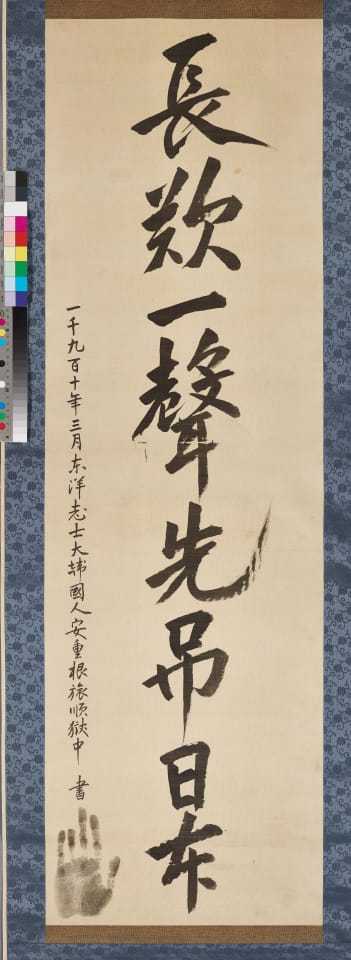 長歎一聲先吊日本
一千九百十年 三月 東洋志士大韓國人安重根旅順獄中 書